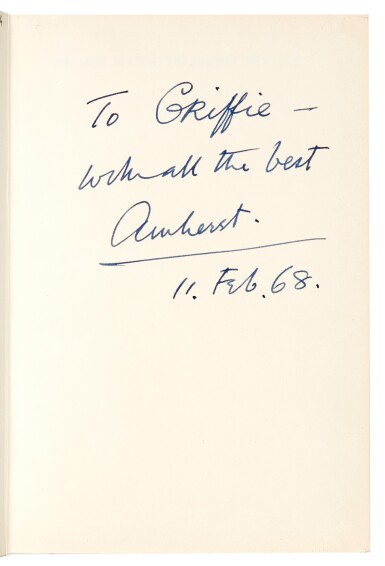 To Griffie –
with all the best
Amherst.
11. Feb. 68.